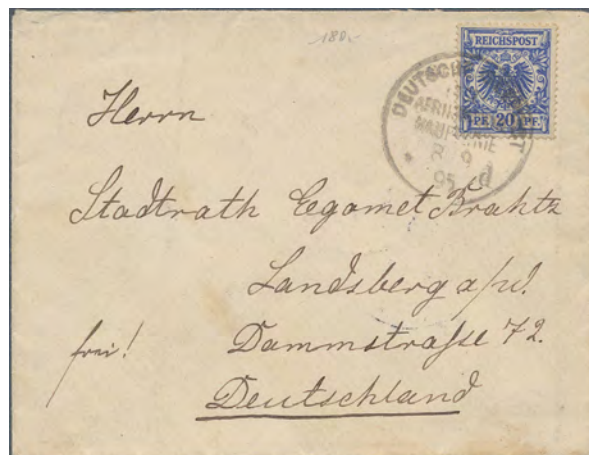 180,-
REICHSPOST
PF. 20 PF.
DEUTSCHE
HAUPTLINIE
9
95 d
Herrn
Stadtrath Egomet Brahtz
Landsberg a/W.
frei! Dammstraße 72.
Deutschland